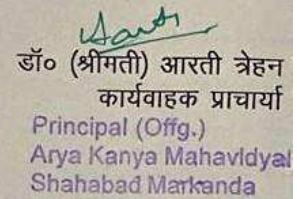 डॉ० (श्रीमती) आरती त्रेहन
कार्यवाहक प्राचार्या
Principal (Offg.)
Arya Kanya Mahavidyal
Shahabad Markanda